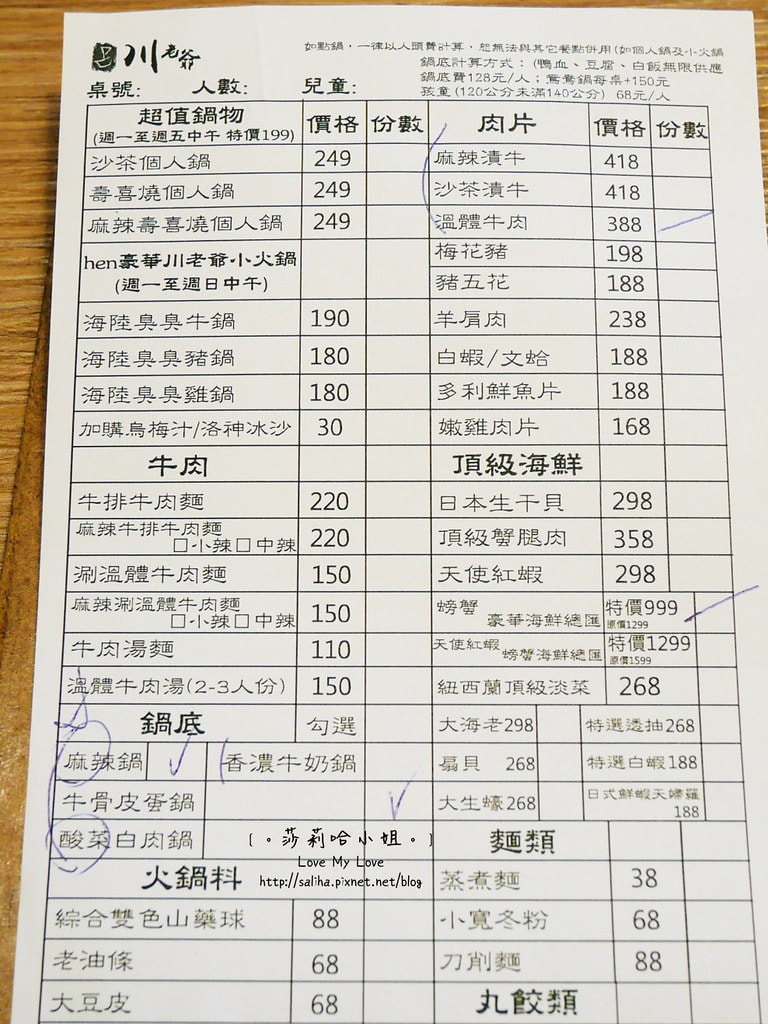 川老爺
如點鍋，一律以人頭費計算，恕無法與其它餐點併用(如個人鍋及小火鍋
鍋底計算方式：(鴨血、豆腐、白飯無限供應
鍋底費128元/人；鴛鴦鍋每桌+150元
孩童(120公分未滿140公分) 68元/人
桌號: 人數: 兒童:
超值鍋物 價格 份數
(週一至週五中午 特價199)
沙茶個人鍋 249
壽喜燒個人鍋 249
麻辣壽喜燒個人鍋 249
hen豪華川老爺小火鍋
(週一至週日中午)
海陸臭臭牛鍋 190
海陸臭臭豬鍋 180
海陸臭臭雞鍋 180
加購烏梅汁/洛神冰沙 30
牛肉
牛排牛肉麵 220
麻辣牛排牛肉麵 220
□小辣□中辣
涮溫體牛肉麵 150
麻辣涮溫體牛肉麵 150
□小辣□中辣
牛肉湯麵 110
溫體牛肉湯(2-3人份) 150
鍋底 勾選
麻辣鍋 香濃牛奶鍋
牛骨皮蛋鍋
酸菜白肉鍋
火鍋料
綜合雙色山藥球 88
老油條 68
大豆皮 68
肉片 價格 份數
麻辣漬牛 418
沙茶漬牛 418
溫體牛肉 388
梅花豬 198
豬五花 188
羊肩肉 238
白蝦/文蛤 188
多利鮮魚片 188
嫩雞肉片 168
頂級海鮮
日本生干貝 298
頂級蟹腿肉 358
天使紅蝦 298
螃蟹 豪華海鮮總匯 特價999
原價1299
天使紅蝦 螃蟹海鮮總匯 特價1299
原價1599
紐西蘭頂級淡菜 268
大海老298 特選透抽268
扇貝 268 特選白蝦188
大生蠔268 日式鮮蝦天婦羅
188
麵類
蒸煮麵 38
小寬冬粉 68
刀削麵 88
丸餃類
(。莎莉哈小姐。)
Love My Love
http://saliha.pixnet.net/blog